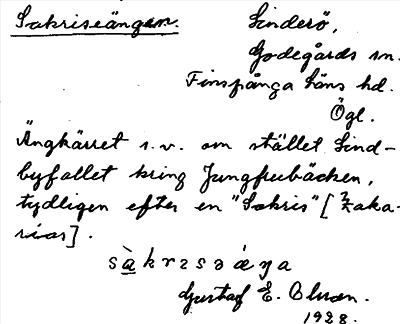 Sakriseängen. Sinderö,
Godegårds sn.
Finspånga läns hd.
Ögl.
Ängkärret s.v. om stället Sind-
byfallet kring Jungfrubäcken,
tydligen efter en "Sakris" [Zaka-
rias].
Gustaf E. Olsson.
1928.